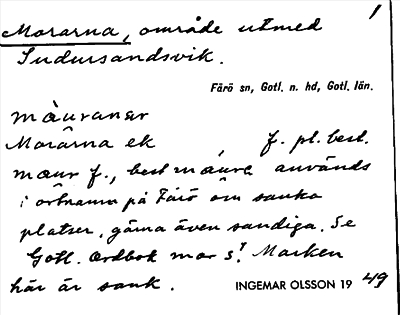 1
Morarna, område utmed
Sudursandsvik.
Fårö sn, Gotl. n. hd, Gotl. län.
mȧuranar
Morårna ek , f. pl. best.
mæur f., best måure används
i ortnamn på Fårö om sanka
platser, gärna även sandiga. Se
Gotl. Ordbok mor s! Marken
här är sank.
INGEMAR OLSSON 19 49